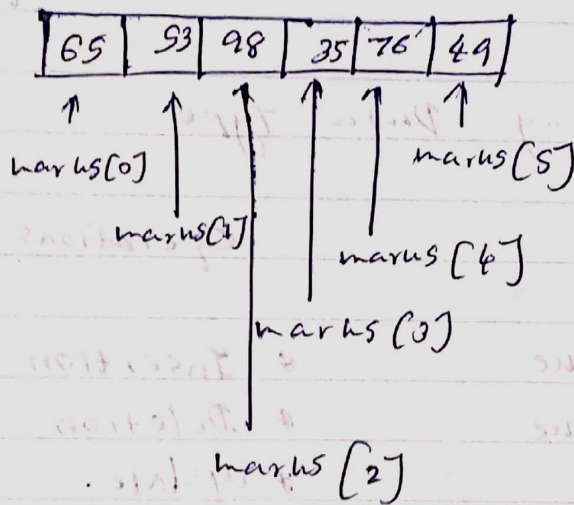 65 53 98 35 76 49
marks[0]
marks[5]
marks[1]
marks[4]
marks[3]
marks[2]